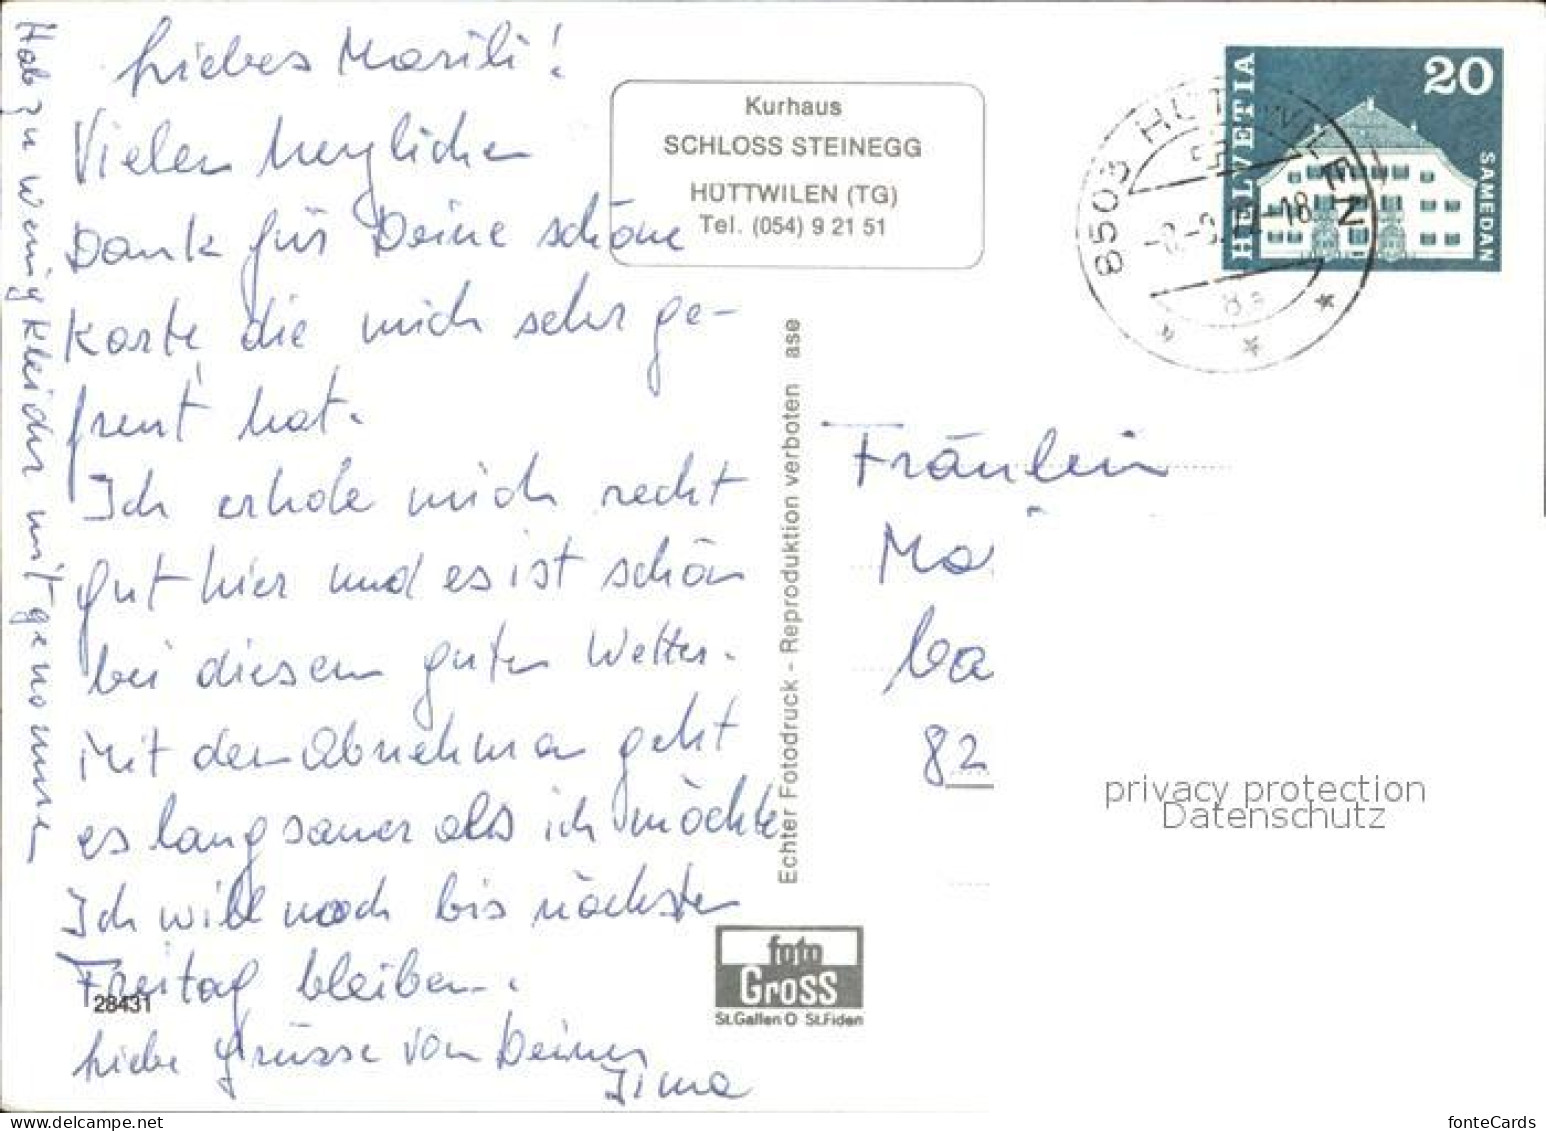 Liebes Marili!
Vielen herzlichen
Dank für Deine schöne
Karte die mich sehr ge-
freut hat.
Ich erhole mich recht
gut hier und es ist schön
bei diesem guten Wetter.
Mit dem Abnehmen geht
es langsamer als ich möchte
Ich will noch bis nächsten
Freitag bleiben.
Liebe Grüsse von Deiner
Hab zu wenig Kleider mitgenommen
28431
Kurhaus
SCHLOSS STEINEGG
HÜTTWILEN (TG)
Tel. (054) 9 21 51
Echter Fotodruck - Reproduktion verboten ase
foto
Gross
St.Gallen O St.Fiden
HELVETIA
20
SAMEDAN
8503 HÜTTWILEN
Fräulein
Ma
82
privacy protection
Datenschutz
fonteCards